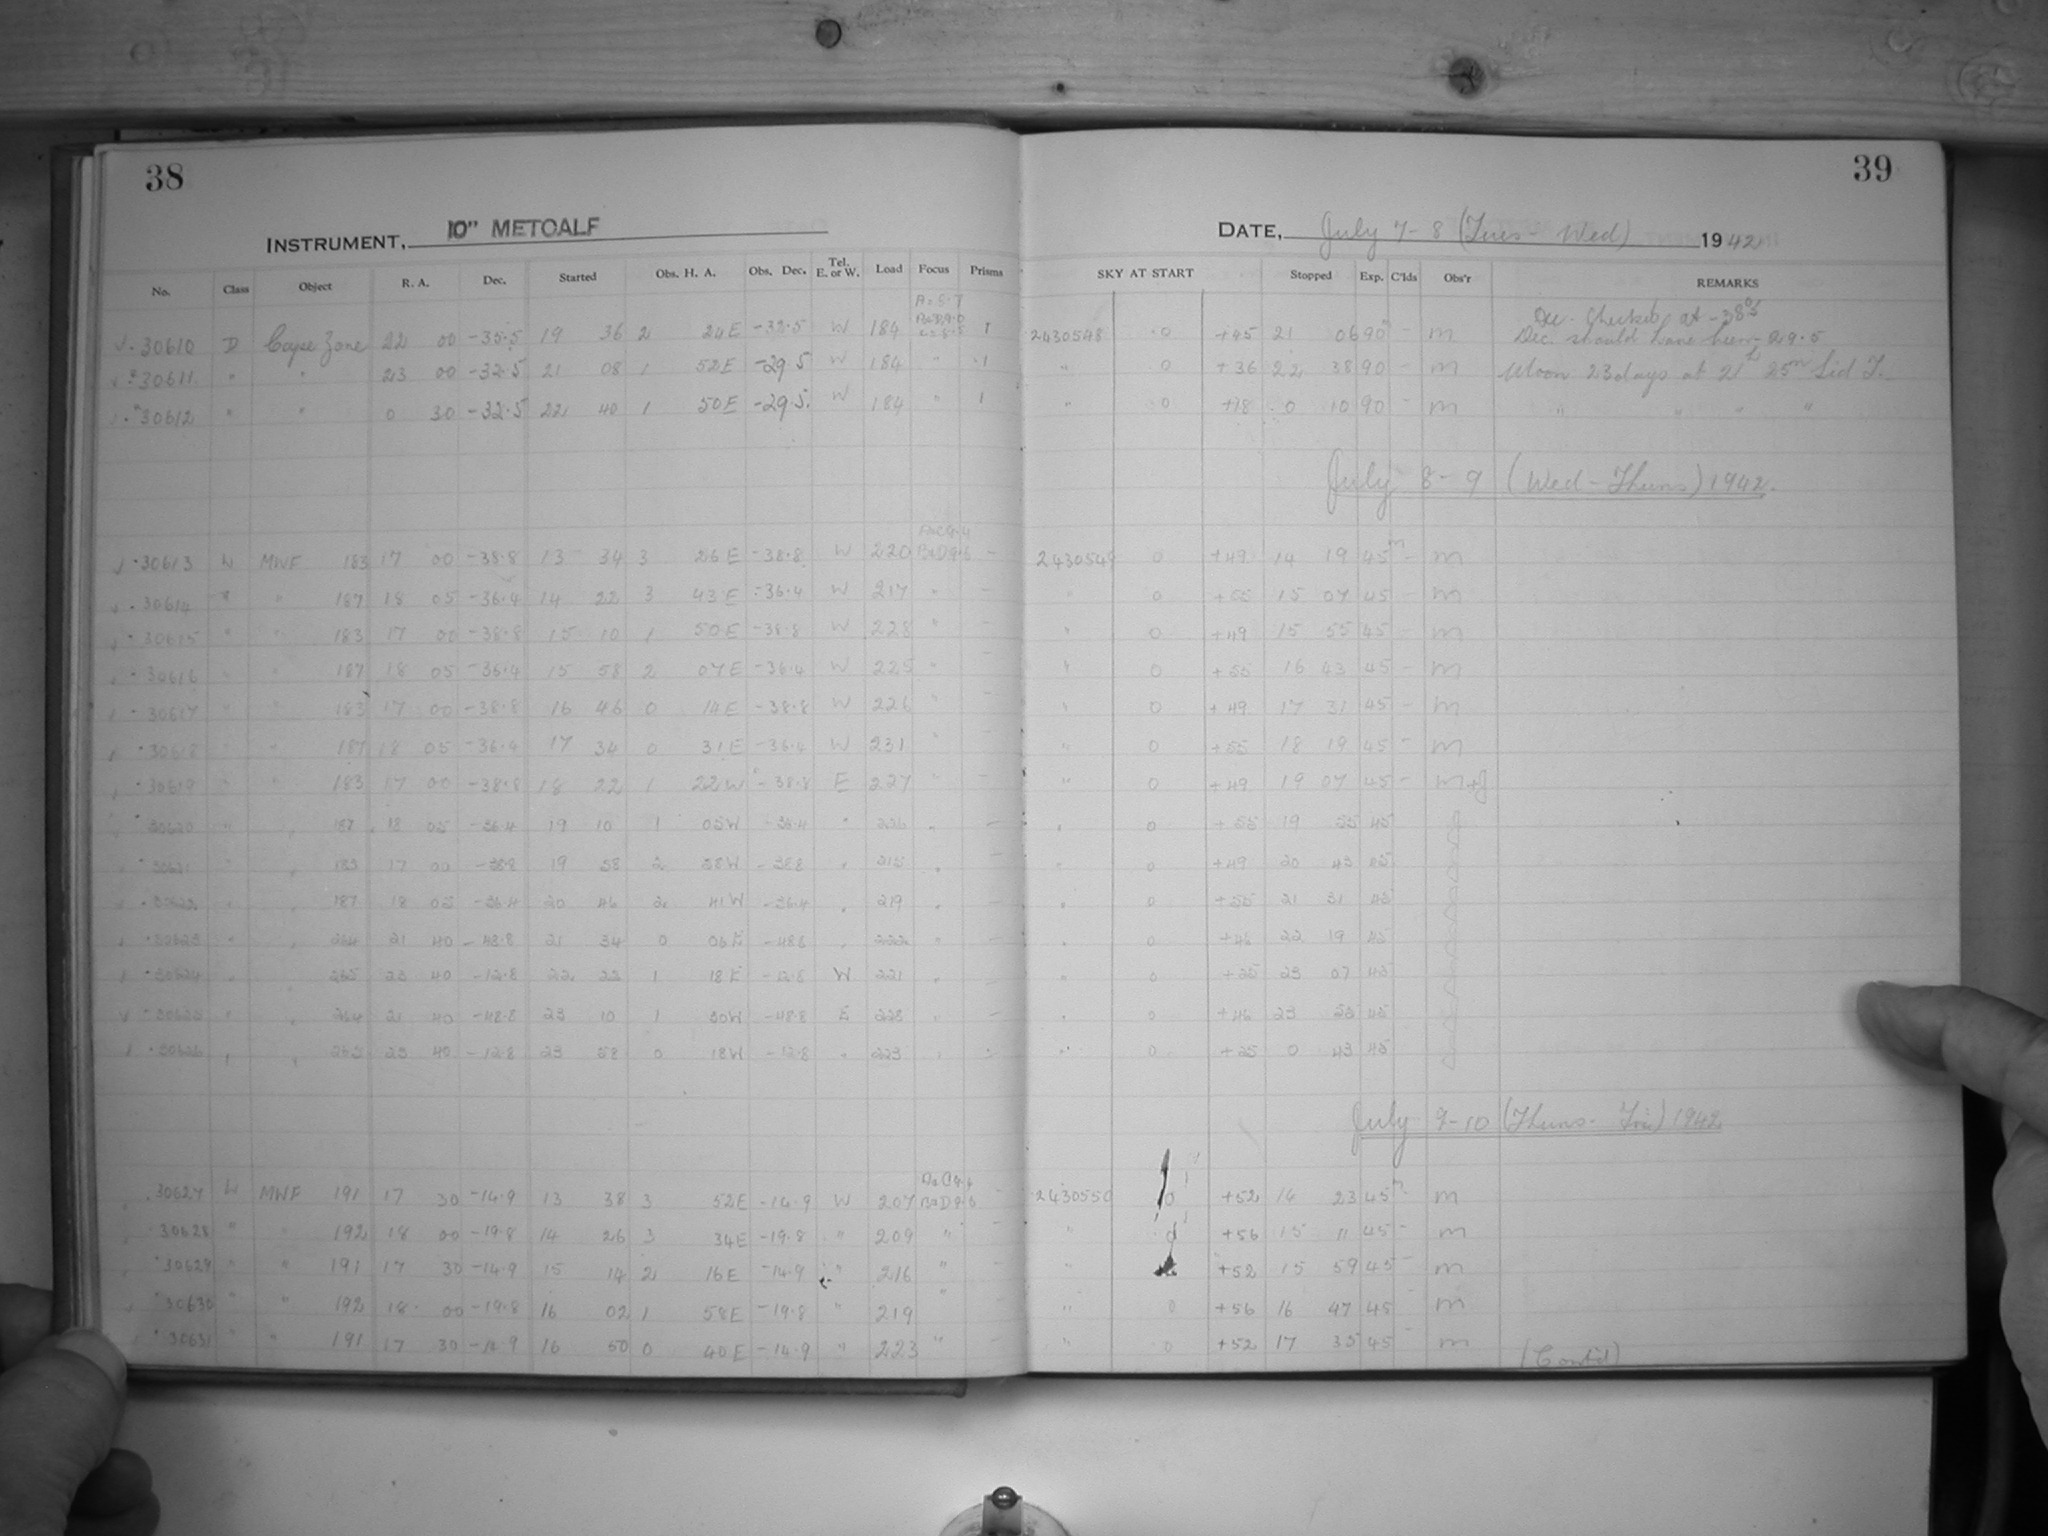 38
39
INSTRUMENT, 10" METCALF
DATE, July 7-8 (Tues - Wed) 1942
No. Class Object R. A. Dec. Started Obs. H. A. Obs. Dec. Tel. E. or W. Load Focus Prisms SKY AT START Stopped Exp. C'lds Obs'r REMARKS
30610 D Cape Zone 22 00 -35.5 19 36 2 24E W 184 1 2430548 0 +45 21 06 90 - m Dec. should have been -29.5
30611 " " 23 00 -32.5 21 08 1 52E -29.5 W 184 " 1 " 0 +36 22 38 90 - m Moon 23 days at 21h 25m Sid T.
30612 " " 0 30 -32.5 22 40 1 50E -29.5 W 184 " 1 " 0 +18 0 10 90 - m " " " "
July 8-9 (Wed - Thurs) 1942.
30613 W MWF 183 17 00 -38.8 13 34 3 26E -38.8 W 220 - 2430549 0 +49 14 19 45m - m
30614 " " 187 18 05 -36.4 14 22 3 43E -36.4 W 217 " - " 0 +55 15 07 45 - m
30615 " " 183 17 00 -38.8 15 10 1 50E -38.8 W 228 " - " 0 +49 15 55 45 - m
30616 " " 187 18 05 -36.4 15 58 2 07E -36.4 W 225 " - " 0 +55 16 43 45 - m
30617 " " 183 17 00 -38.8 16 46 0 14E -38.8 W 226 " - " 0 +49 17 31 45 - m
30618 " " 187 18 05 -36.4 17 34 0 31E -36.4 W 231 " - " 0 +55 18 19 45 - m
30619 " " 183 17 00 -38.8 18 22 1 22W -38.8 E 227 " - " 0 +49 19 07 45 - m+J
30620 " " 187 18 05 -36.4 19 10 1 05W -36.4 " " - " 0 +55 19 55 45
30621 " " 183 17 00 -38.8 19 58 2 58W -38.8 " " - " 0 +49 20 43 45
30622 " " 187 18 05 -36.4 20 46 2 41W -36.4 " 219 " - " 0 +55 21 31 45
30623 " " 264 21 40 -48.8 21 34 0 06E -48.8 " 222 " - " 0 +46 22 19 45
30624 " " 265 23 40 -12.8 22 22 1 18E -12.8 W 221 " - " 0 +35 23 07 45
30625 " " 264 21 40 -48.8 23 10 1 30W -48.8 E 228 " - " 0 +46 23 55 45
30626 " " 265 23 40 -12.8 23 58 0 18W -12.8 " 223 " - " 0 +35 0 43 45
July 9-10 (Thurs - Fri) 1942
30627 W MWF 191 17 30 -14.9 13 38 3 52E -14.9 W 207 - 2430550 0 +52 14 23 45m - m
30628 " " 192 18 00 -19.8 14 26 3 34E -19.8 " 209 " - " 0 +56 15 11 45 - m
30629 " " 191 17 30 -14.9 15 14 2 16E -14.9 " 216 " - " +52 15 59 45 - m
30630 " " 192 18 00 -19.8 16 02 1 58E -19.8 " 219 " - " 0 +56 16 47 45 - m
30631 " " 191 17 30 -14.9 16 50 0 40E -14.9 " 223 " - " 0 +52 17 35 45 - m
(Cont'd)